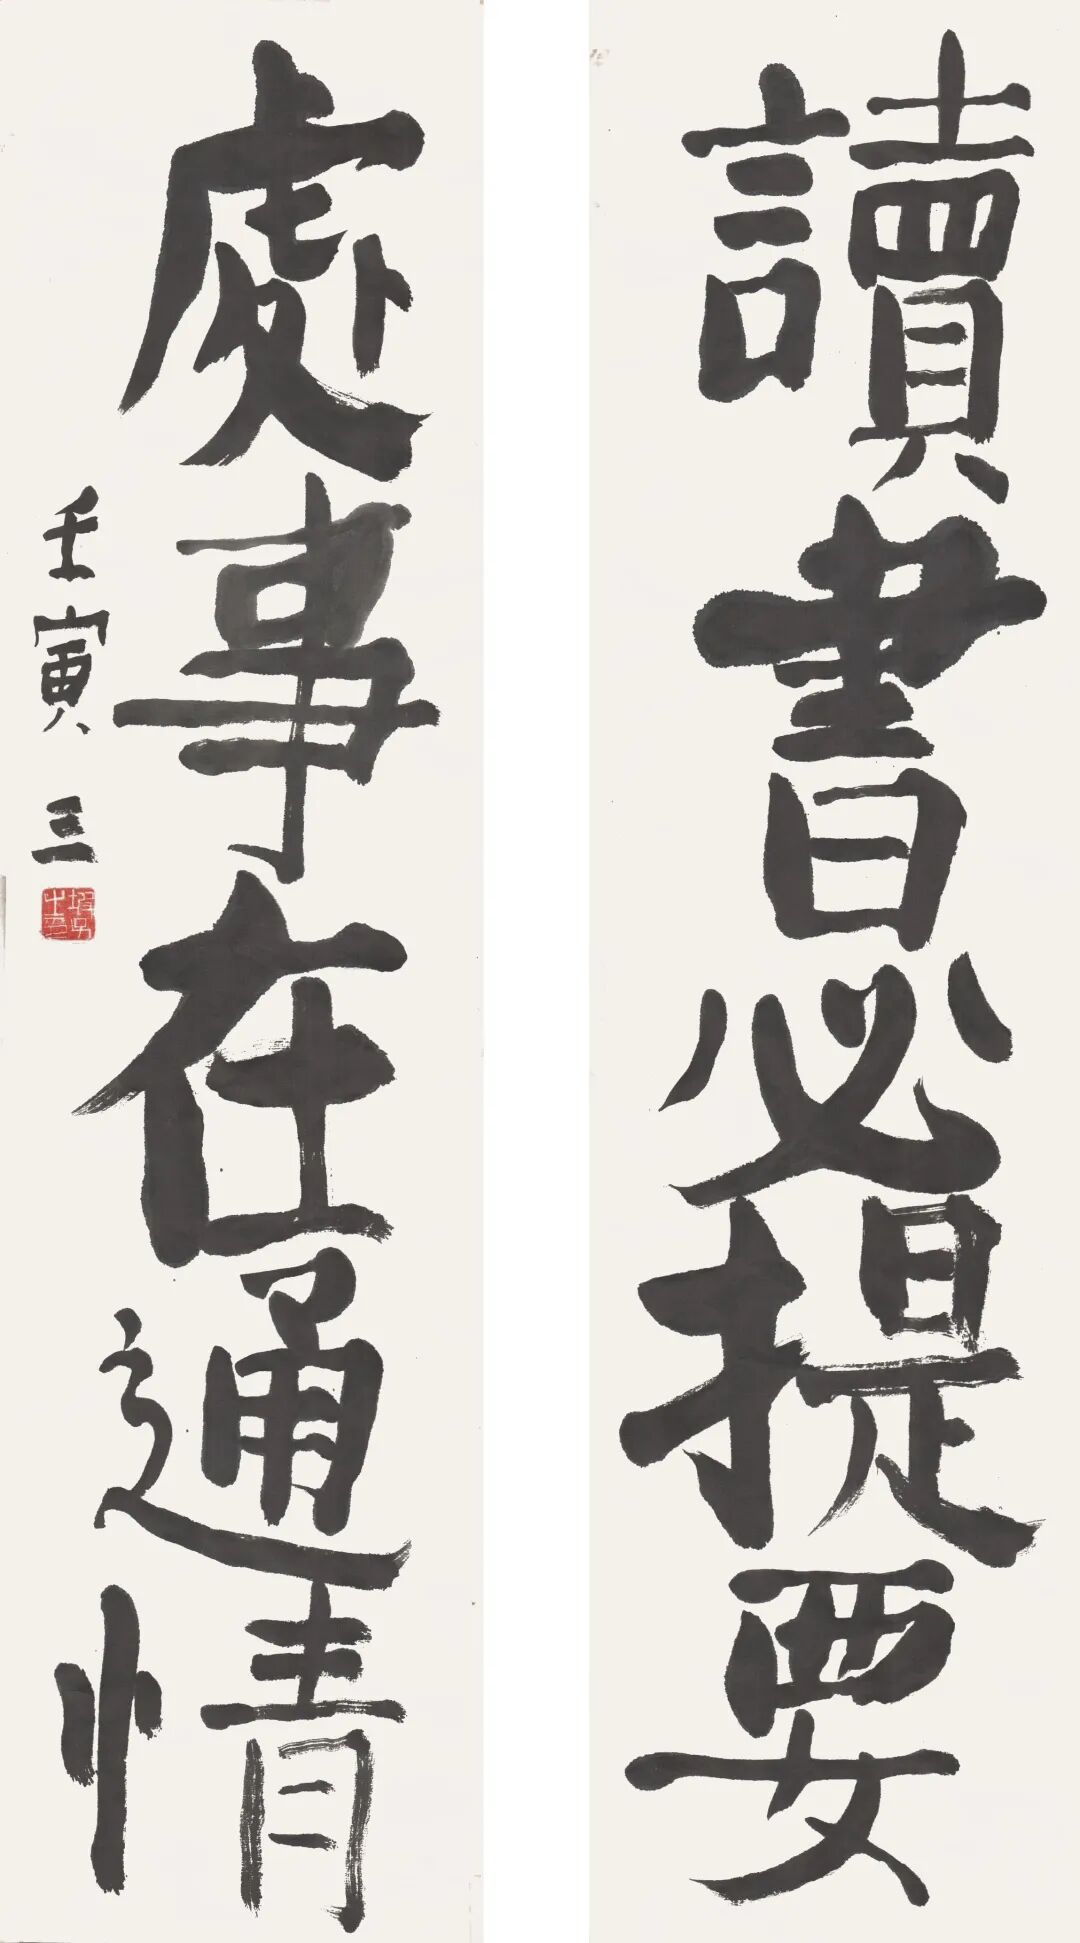 讀書必提要
處事在通情
壬寅 三